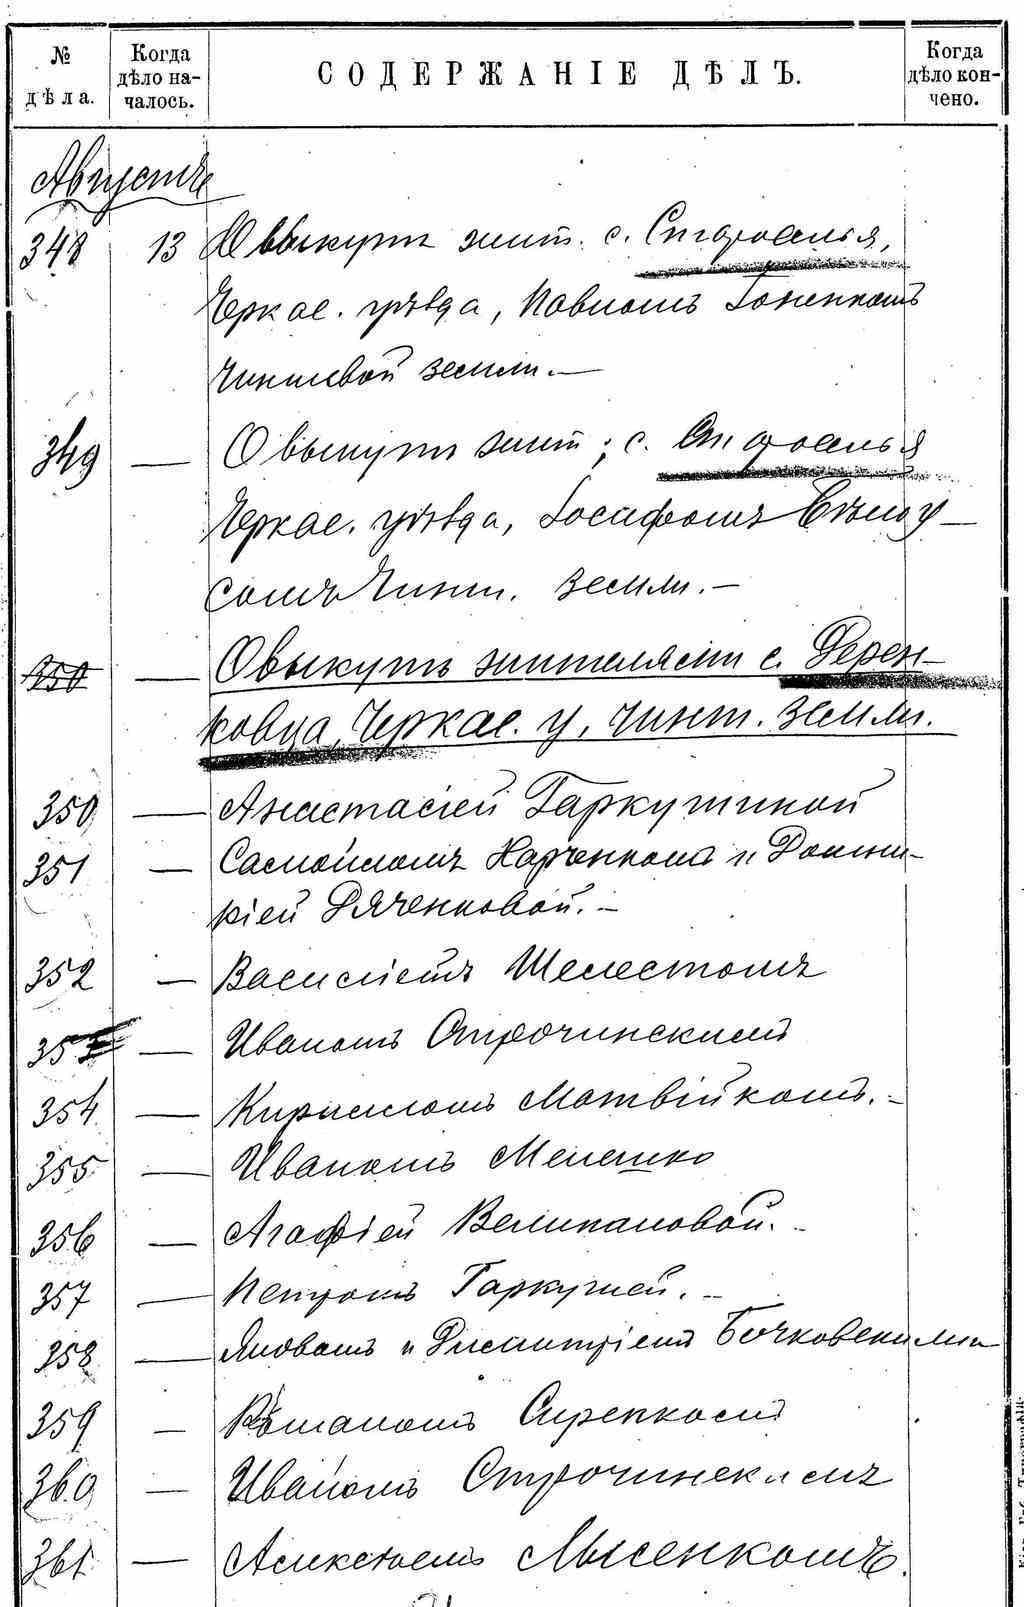 № дѣла.
Когда дѣло началось.
СОДЕРЖАНІЕ ДѢЛЪ.
Когда дѣло кончено.
Августъ
348 13 О выкупѣ жит. с. Староселья,
Черкас. уѣзда, Павломъ Гоненкомъ
чиншевой земли. —
349 — О выкупѣ жит. с. Староселья
Черкас. уѣзда, Іосафомъ Бѣлоу-
сомъ чинш. земли. —
350 — О выкупѣ жителями с. Дерен-
ковца, Черкас. у, чинш. земли.
350 — Анастасіей Гаркушиной
351 — Самойломъ Харченкомъ и Домни-
кіей Дяченковой. —
352 — Василіемъ Шелестомъ
353 — Иваномъ Строчинскимъ
354 — Кирилломъ Матвійкомъ. —
355 — Иваномъ Мелешко
356 — Агафіей Великановой. —
357 — Петромъ Гаркушей. —
358 — Яковомъ и Димитріемъ Бочковскими
359 — Романомъ Сирепкомъ
360 — Иваномъ Строчинскимъ
361 — Алексѣемъ Лысенкомъ.